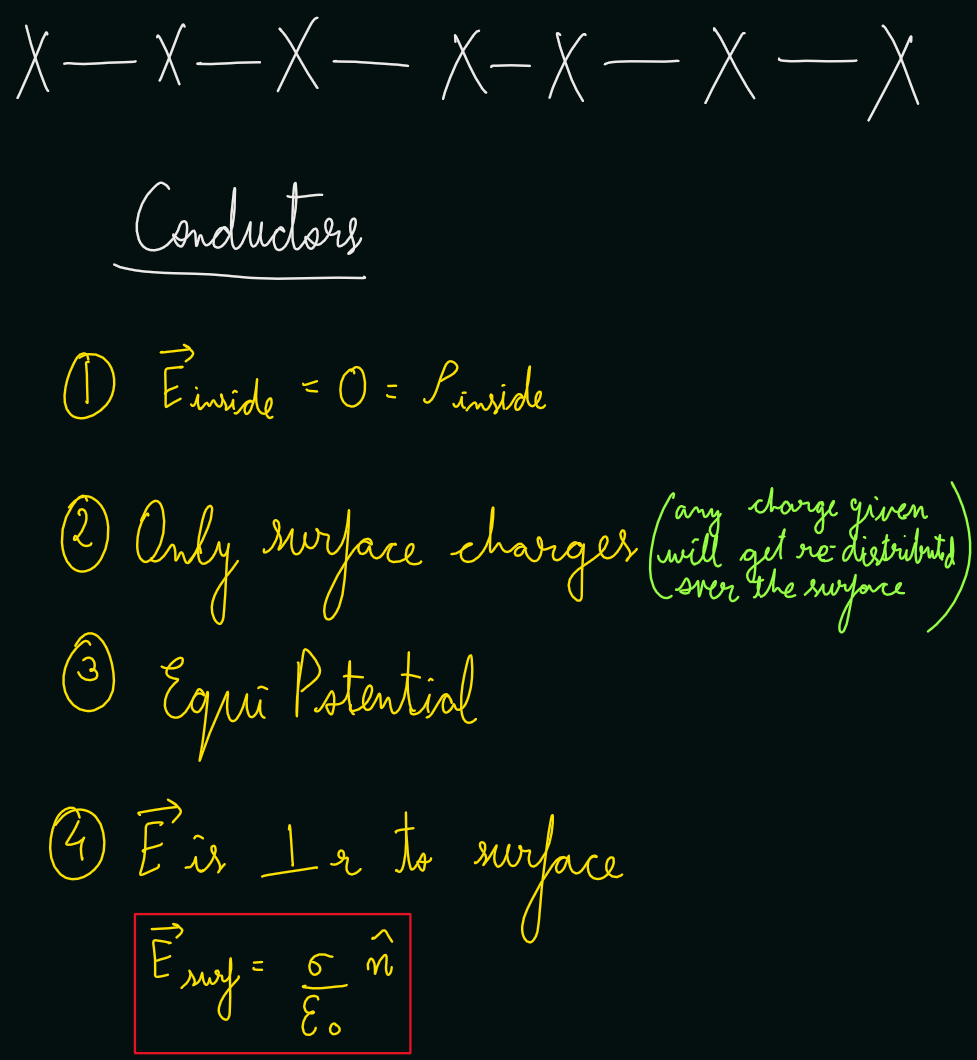 X — X — X — X — X — X — X
Conductors
① E⃗ inside = 0 = ρ inside
② Only surface charges (any charge given
will get re-distributed
over the surface)
③ Equi Potential
④ E⃗ is ⊥r to surface
E⃗ surf = σ/ε₀ n̂